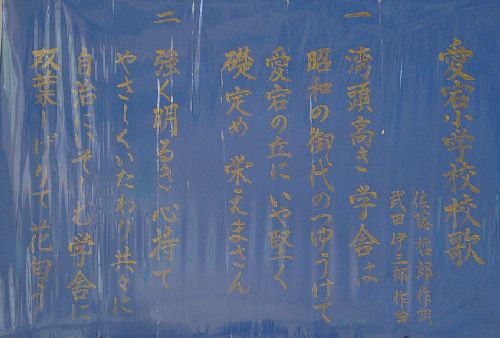 愛宕小学校校歌
佐藤哲郎作詞
武田伊三郎作曲
一 湾頭高き学舎は
昭和の御代のつゆうけて
愛宕の丘にいや堅く
礎定め栄えまさん
二 強く明るき心持て
やさしくいたわり共々に
自治にいそしむ学舎に
双葉しげりて花匂う